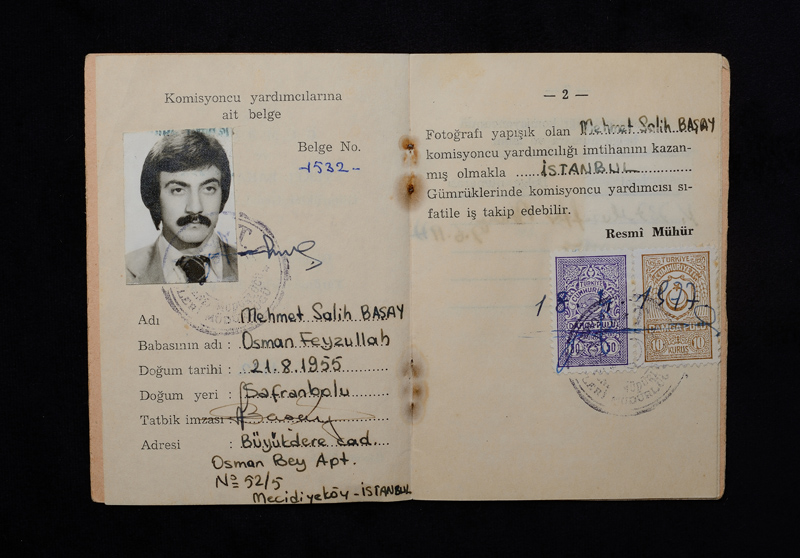 Komisyoncu yardımcılarına
ait belge
Belge No.
1532
Adı : Mehmet Salih BAŞAY
Babasının adı : Osman Feyzullah
Doğum tarihi : 21.8.1955
Doğum yeri : Safranbolu
Tatbik imzası : Başay
Adresi : Büyükdere cad.
Osman Bey Apt.
No 52/5
Mecidiyeköy - İSTANBUL
— 2 —
Fotoğrafı yapışık olan Mehmet Salih BAŞAY
komisyoncu yardımcılığı imtihanını kazan-
mış olmakla İSTANBUL
Gümrüklerinde komisyoncu yardımcısı sı-
fatile iş takip edebilir.
Resmî Mühür
TÜRKİYE
CUMHURİYETİ
DAMGA PULU
TÜRKİYE
CUMHURİYETİ
DAMGA PULU
10 KURUŞ 10